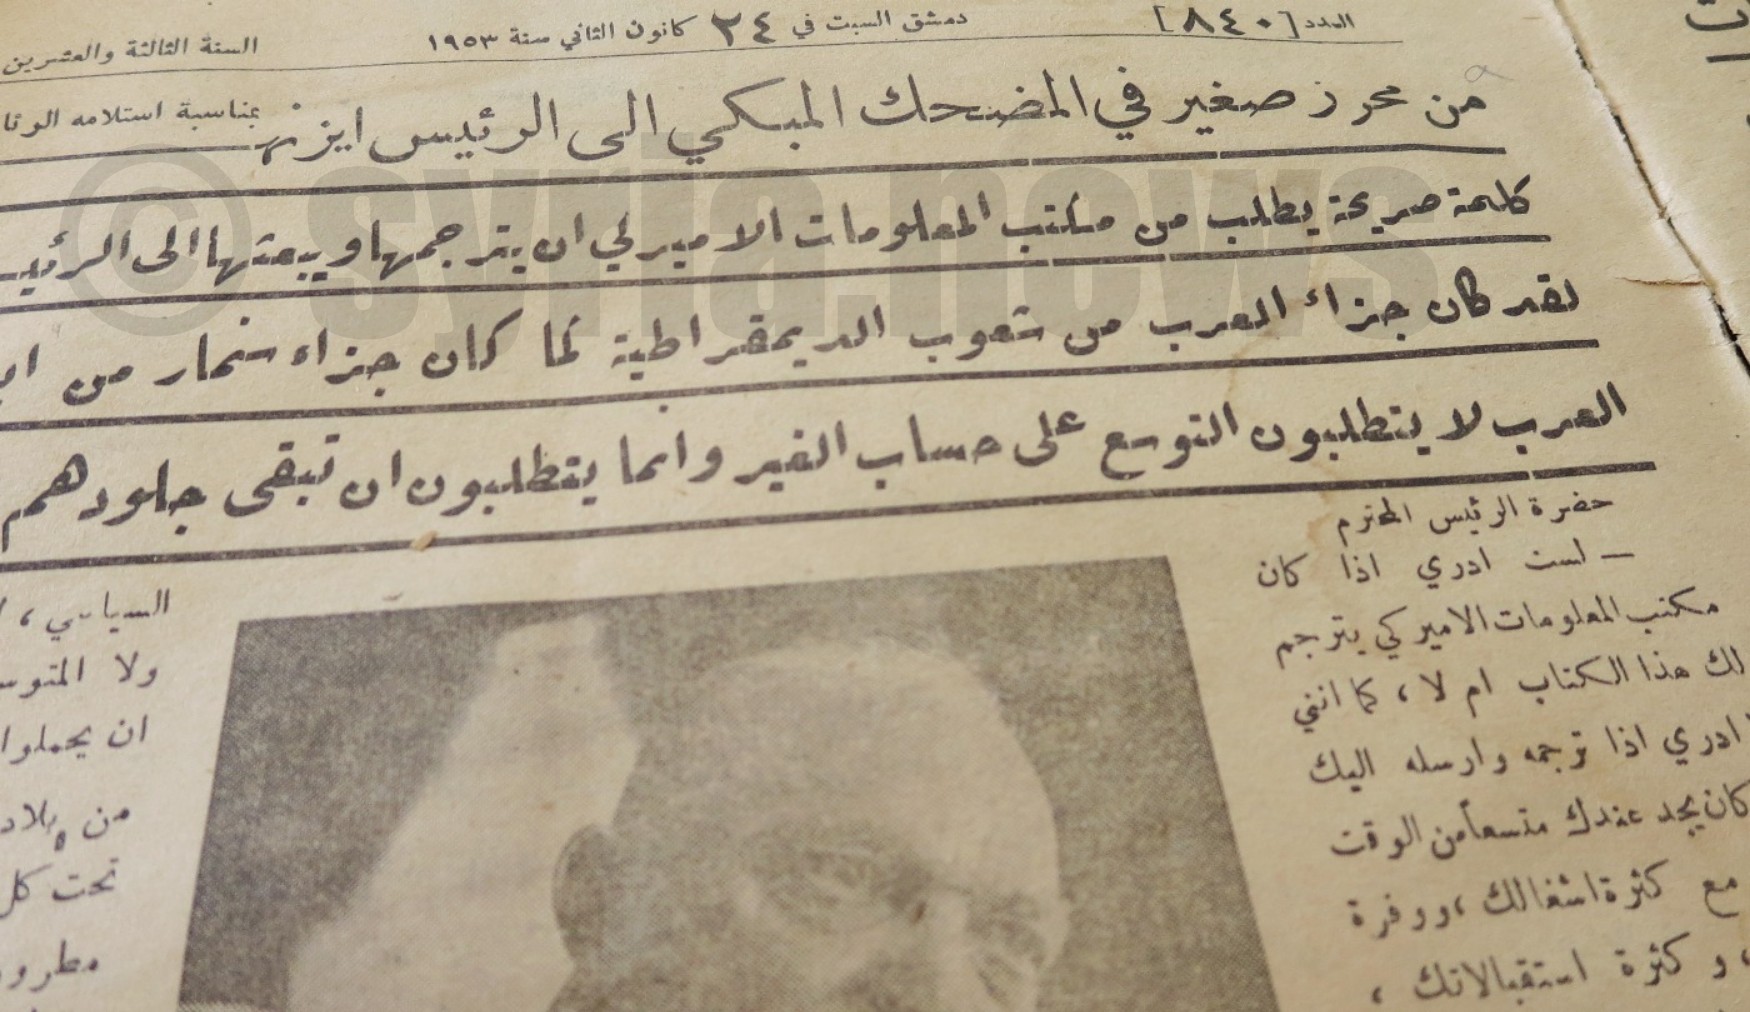 العدد [٨٤٠]
دمشق السبت في ٢٤ كانون الثاني سنة ١٩٥٣
السنة الثالثة والعشرين
من محرر صغير في المضحك المبكي الى الرئيس ايزنهـ
بمناسبة استلامه
كلمة صريحة يطلب من مكتب المعلومات الاميركي ان يترجمها ويبعثها الى
لقد كان جزاء العرب من شعوب الديمقراطية كما كان جزاء سنمار من
العرب لا يتطلبون التوسع على حساب الغير وانما يتطلبون ان تبقى جلودهم
حضرة الرئيس المحترم
— لست ادري اذا كان
مكتب المعلومات الاميركي يترجم
لك هذا الكتاب ام لا ، كما انني
ادري اذا ترجمه وارسله اليك
كان يجد عندك متسعاً من الوقت
مع كثرة اشغالك ، ووفرة
، و كثرة استقبالاتك ،
السياسي ،
ولا
ان يحملوا
من
تحت كل
© syria.news